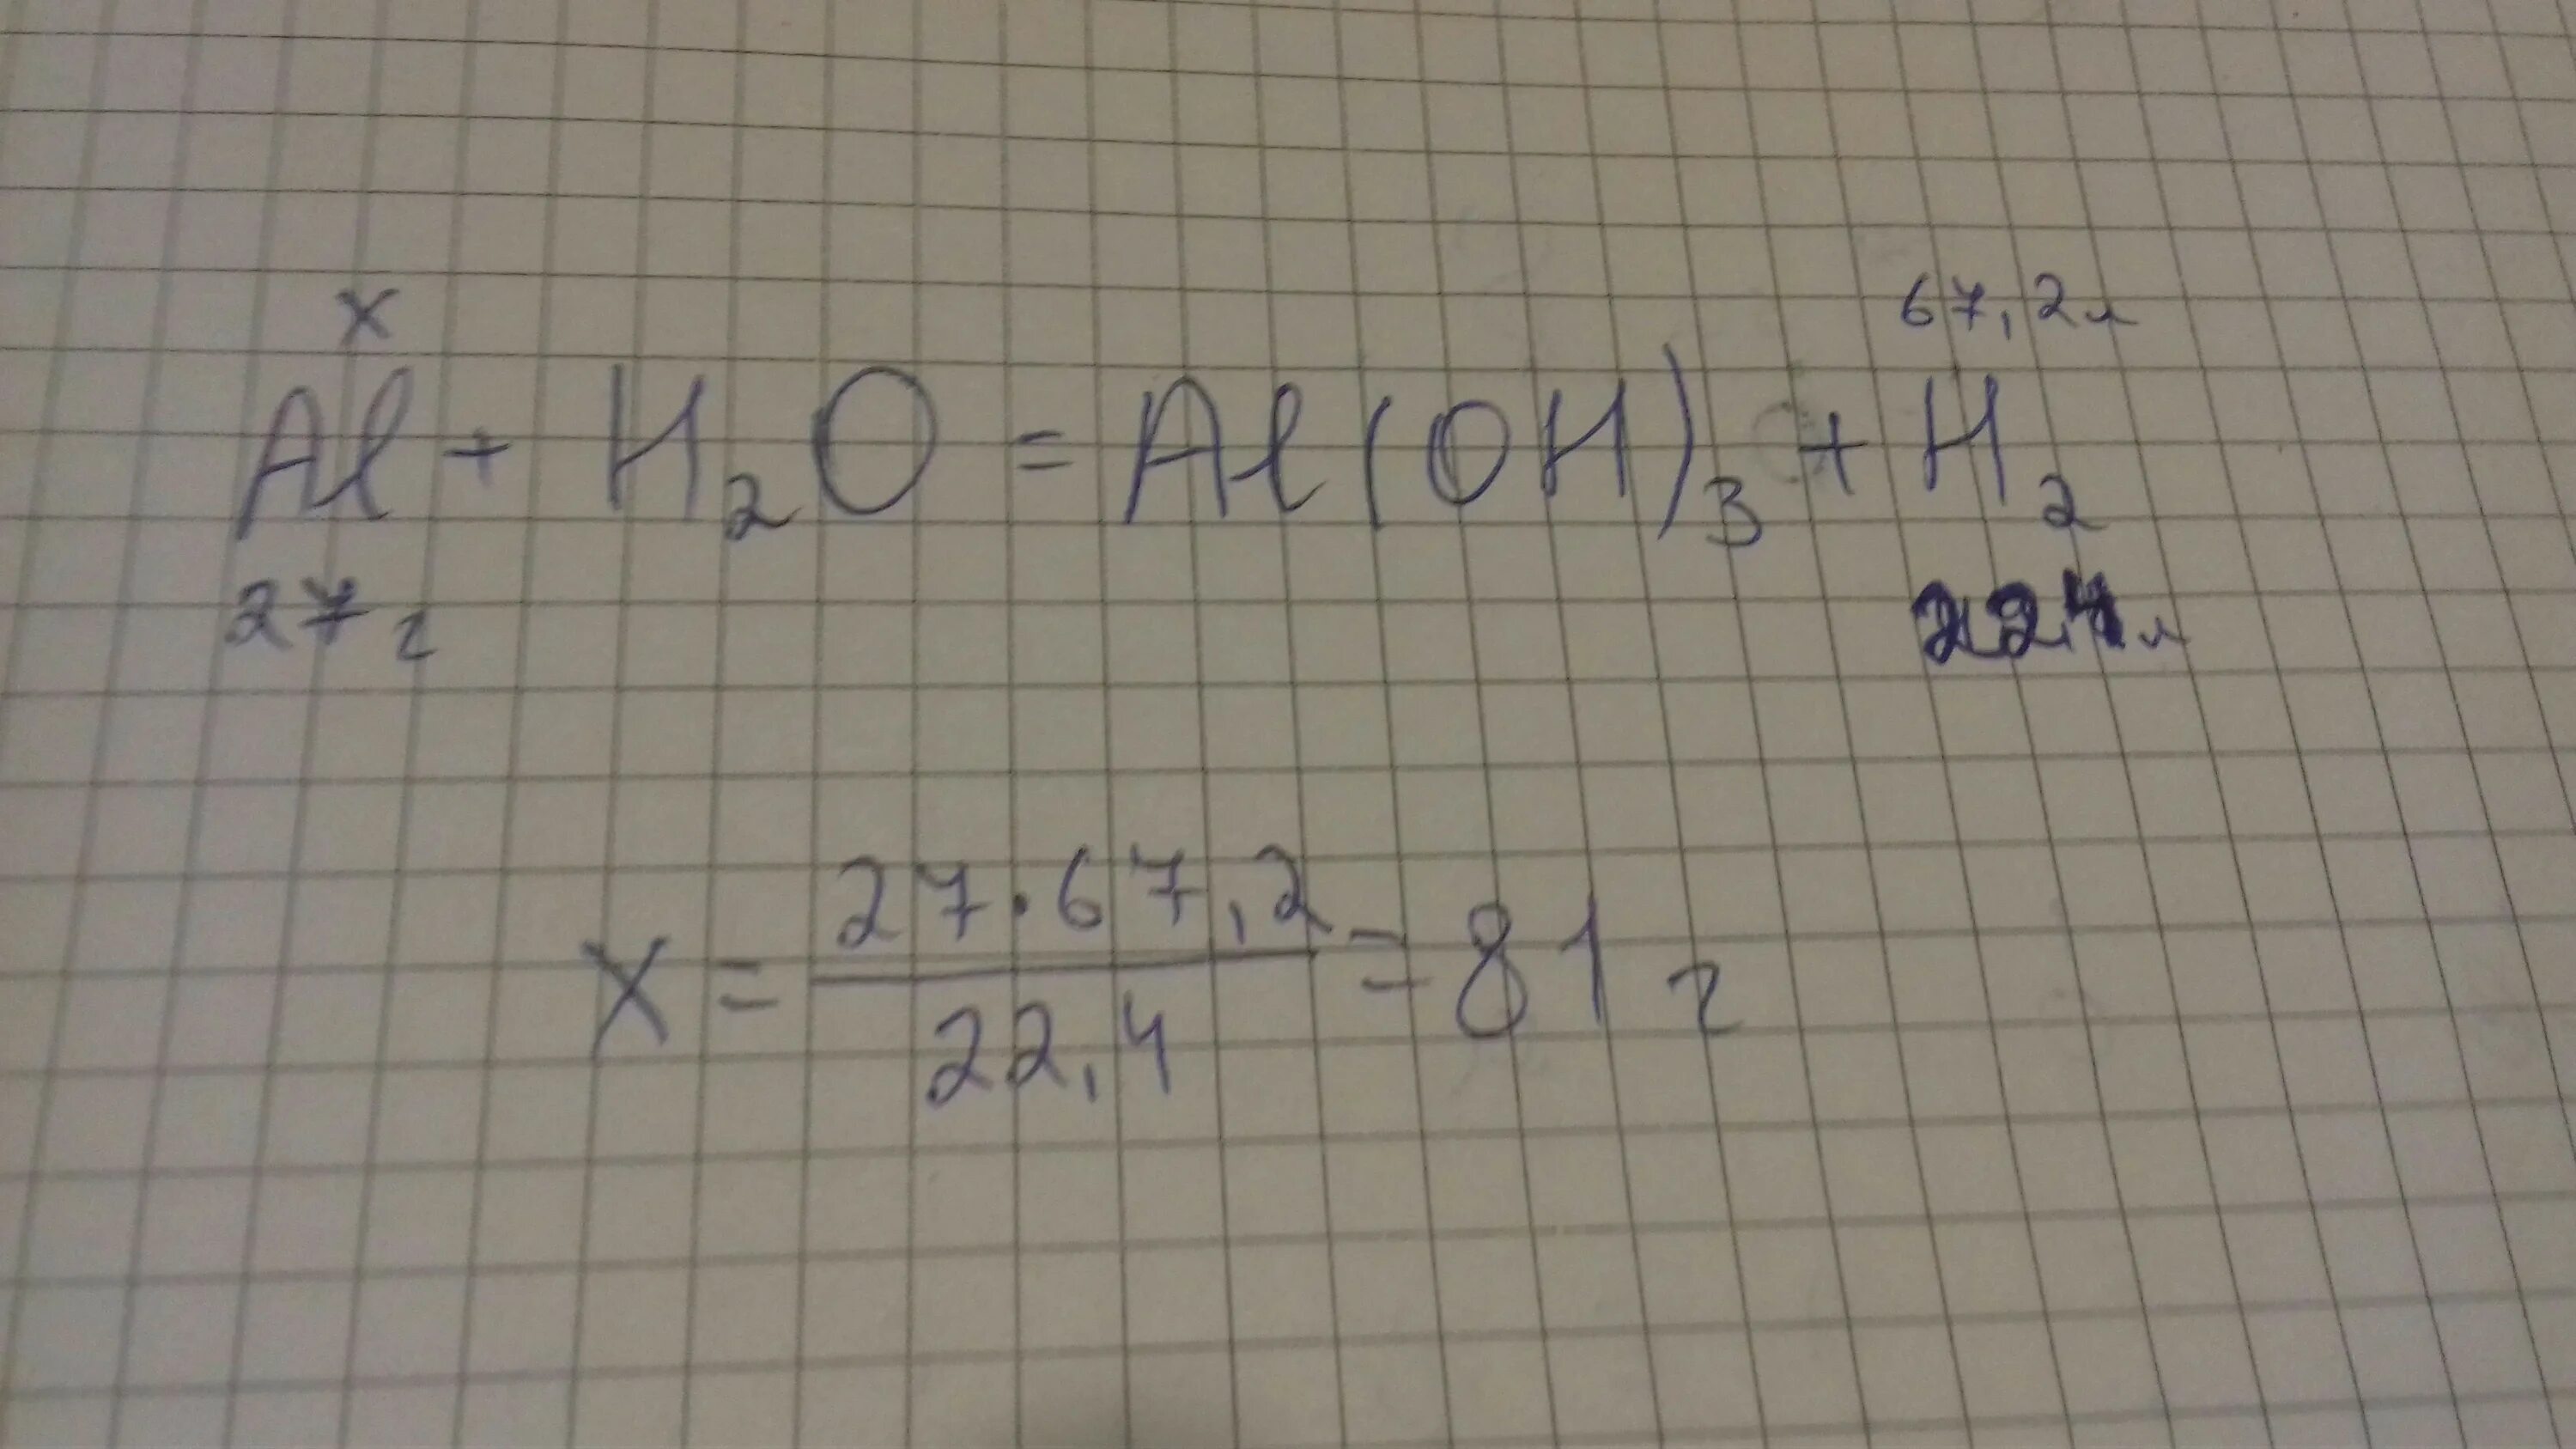 x 67,2л
Al + H₂O = Al(OH)₃ + H₂
27г 22,4л
27·67,2
x = ─── = 81 г
22,4